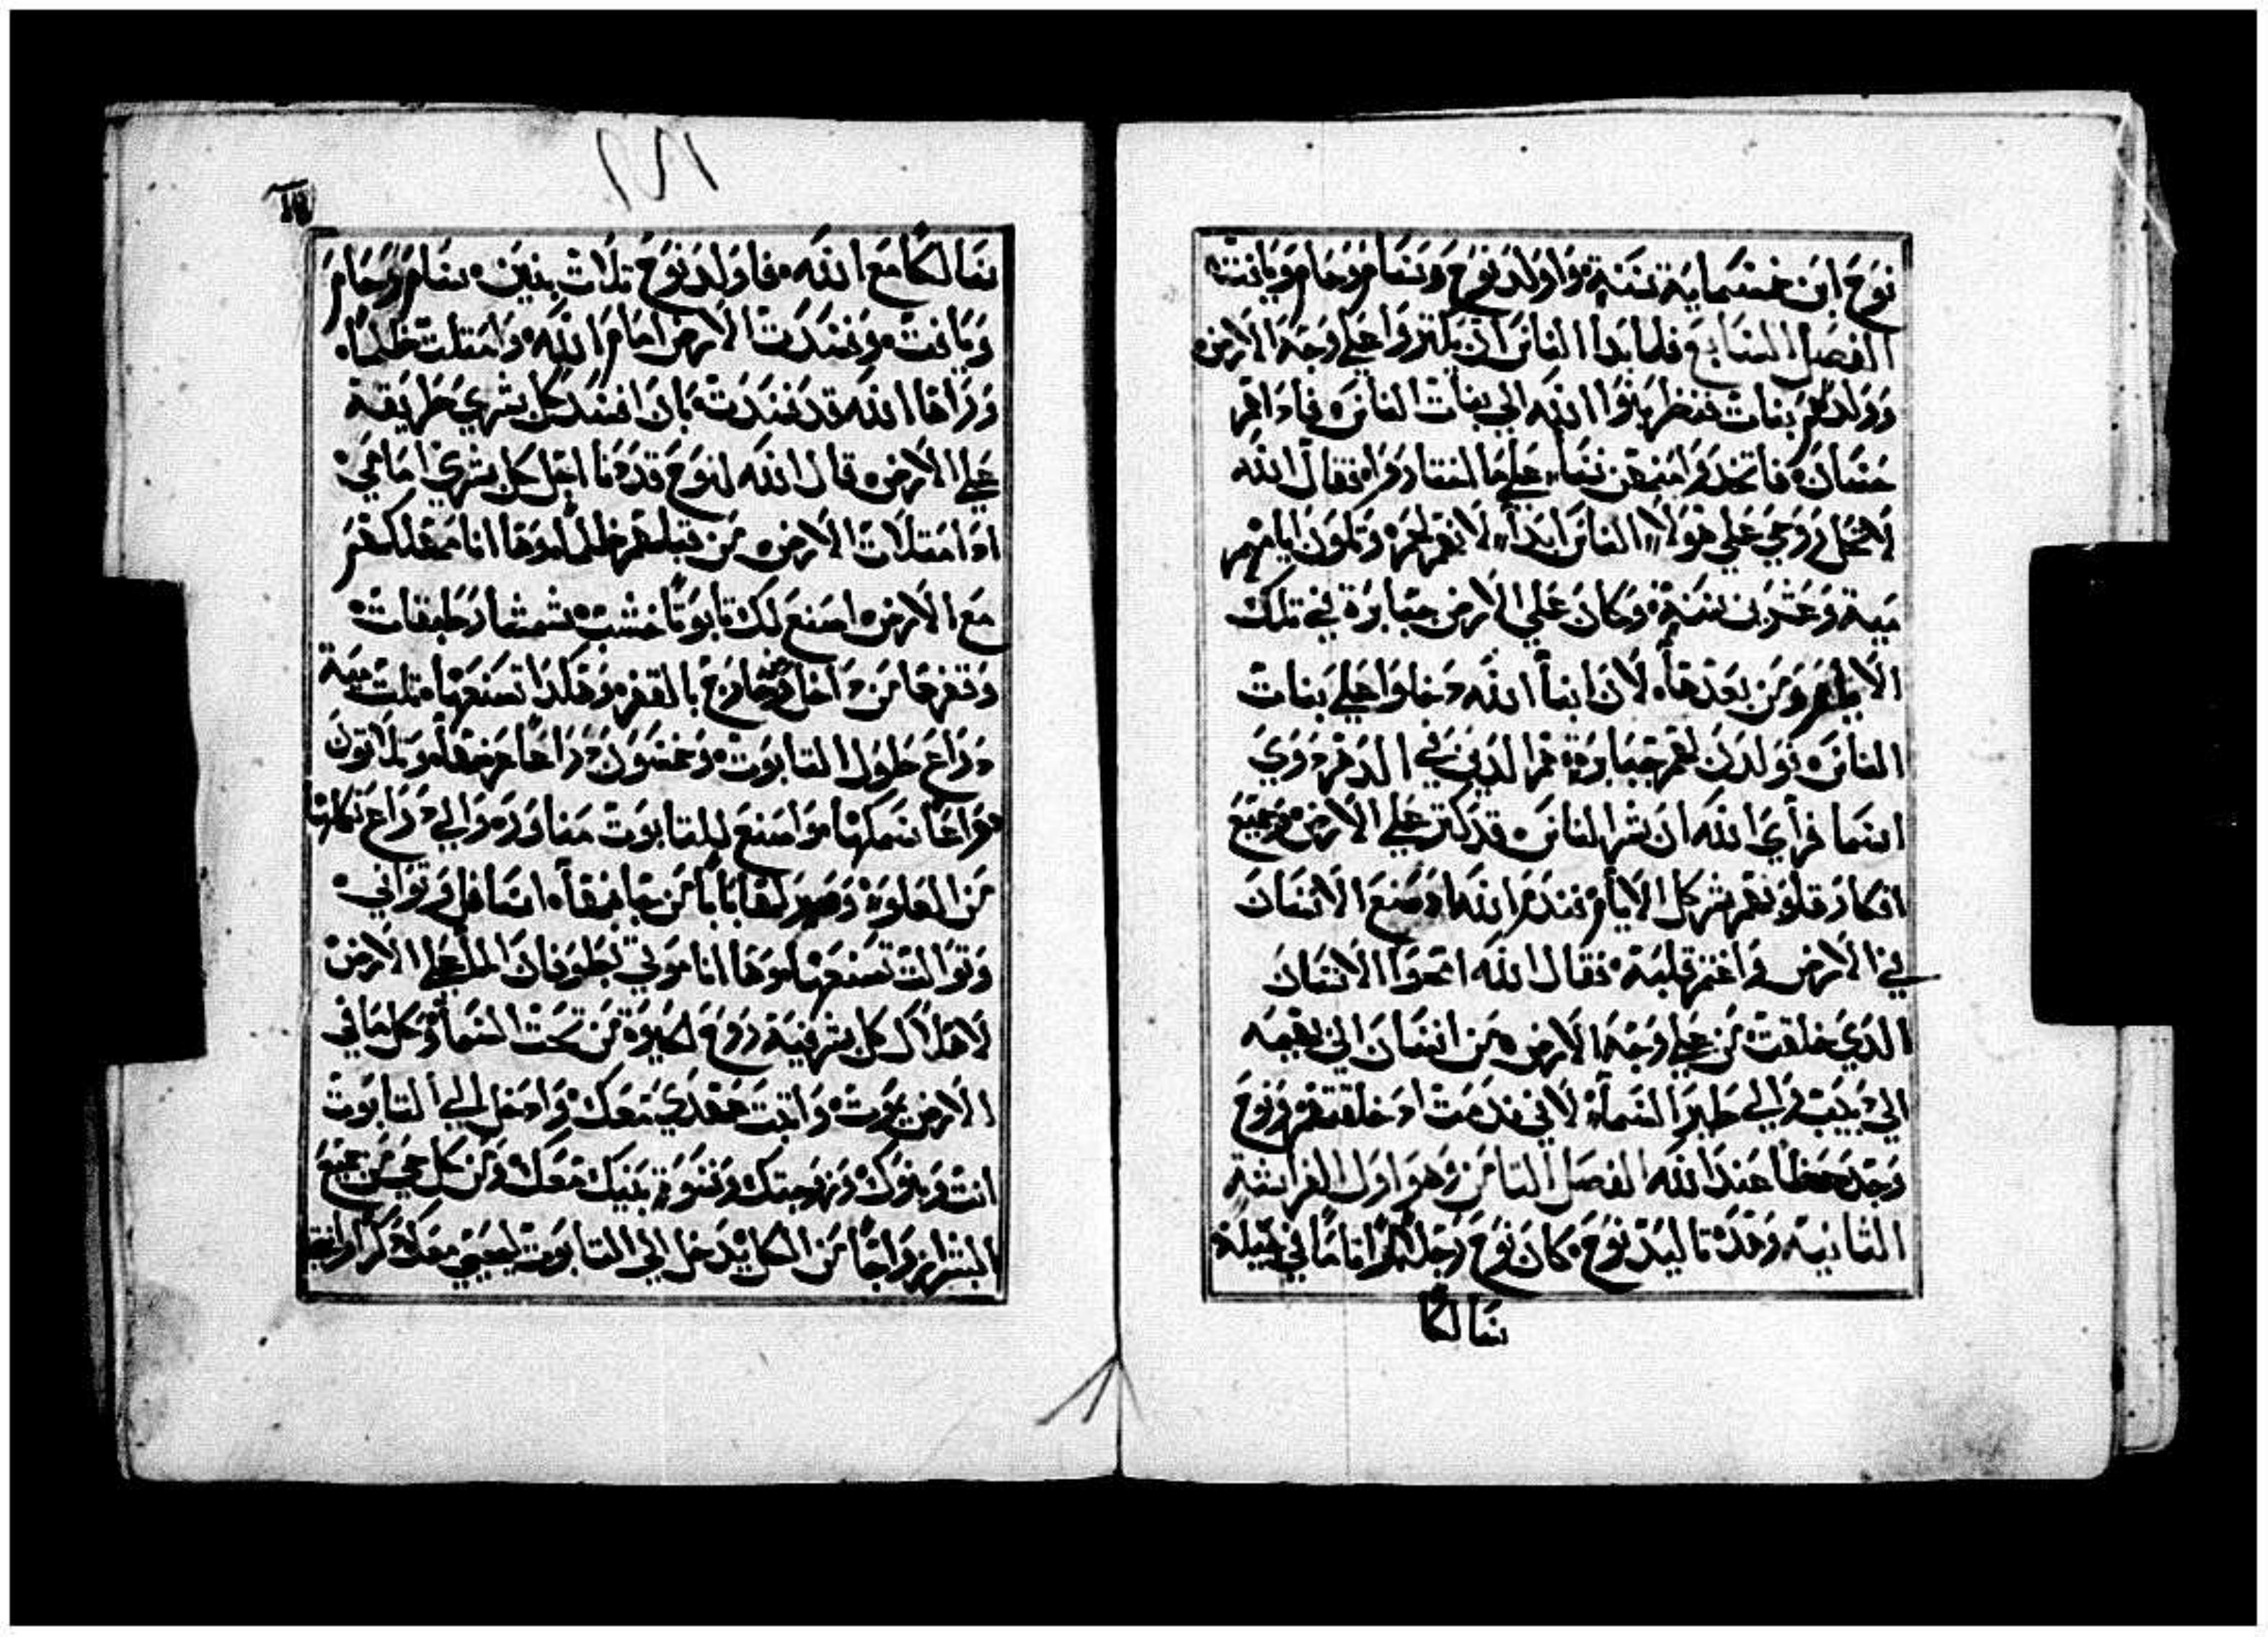 نوح ابن خمسماية سنة واولد نوح وسام وحام ويافت
الفصل السابع فلما بدا الناس ان يكتروا علي وجه الارض
وولد لهم بنات فنظر بنوا الله الي بنات الناس فاداهم
حسان فاتخدوا منهن نسا علي ما اختاروا فقال الله
لا تحل روحي علي هولا الناس ابدا لانهم لحم وتكون ايامهم
مية وعشرين سنة وكان علي الارض جبابرة في تلك
الايام ومن بعدها لان ابنا الله دخلوا علي بنات
الناس تولدن لهم جبابرة هم الدين في الدهر دوي
اسما فراي الله ان شر الناس قد كتر علي الارض وجميع
افكار قلوبهم شر كل الايام فندم الله اد صنع الانسان
في الارض واغتم قلبه فقال الله امحوا الانسان
الدي خلقت من علي وجه الارض من انسان الي بهيمه
الي دبيب والي طير السما لاني ندمت اد خلقتهم ونوح
وجد حظا عند الله الفصل التامن وهو اول الفراشة
التانية وهده تاليد نوح كان نوح رجلا تاما في جيله
سالكا
سالكا مع الله فاولد نوح تلات بنين سام وحام
ويافت وفسدت الارض امام الله وامتلت ظلما
وراها الله قد فسدت بان افسد كل بشري طريقة
علي الارض قال الله لنوح قد دنا اجل كل بشري امامي
اد امتلات الارض من قبلهم ظلما وها انا مهلكهم
مع الارض اصنع لك تابوتا خشب شمشار طبقات
وتقرها من داخل وخارج بالقفر وهكدا تصنعها تلت مية
دراع طول التابوت وخمسون دراعا عرضها وتلاتون
دراعا سمكها واصنع للتابوت مناور والي دراع تكملها
من العلو وصير لها بابا من جانبها اسافل وتواني
وتوالت تصنعها وها انا موتي بطوفان الما علي الارض
لاهلاك كل بشر فية روح الحيوة من تحت السما وكل ما في
الارض يموت واتبت عهدي معك وادخل الي التابوت
انت وبنوك وزوجتك ونسوة بنيك معك ومن كل حي من جميع
البشر ازواجا من الكل يدخل الي التابوت ليحيي معك دكرا وانتي